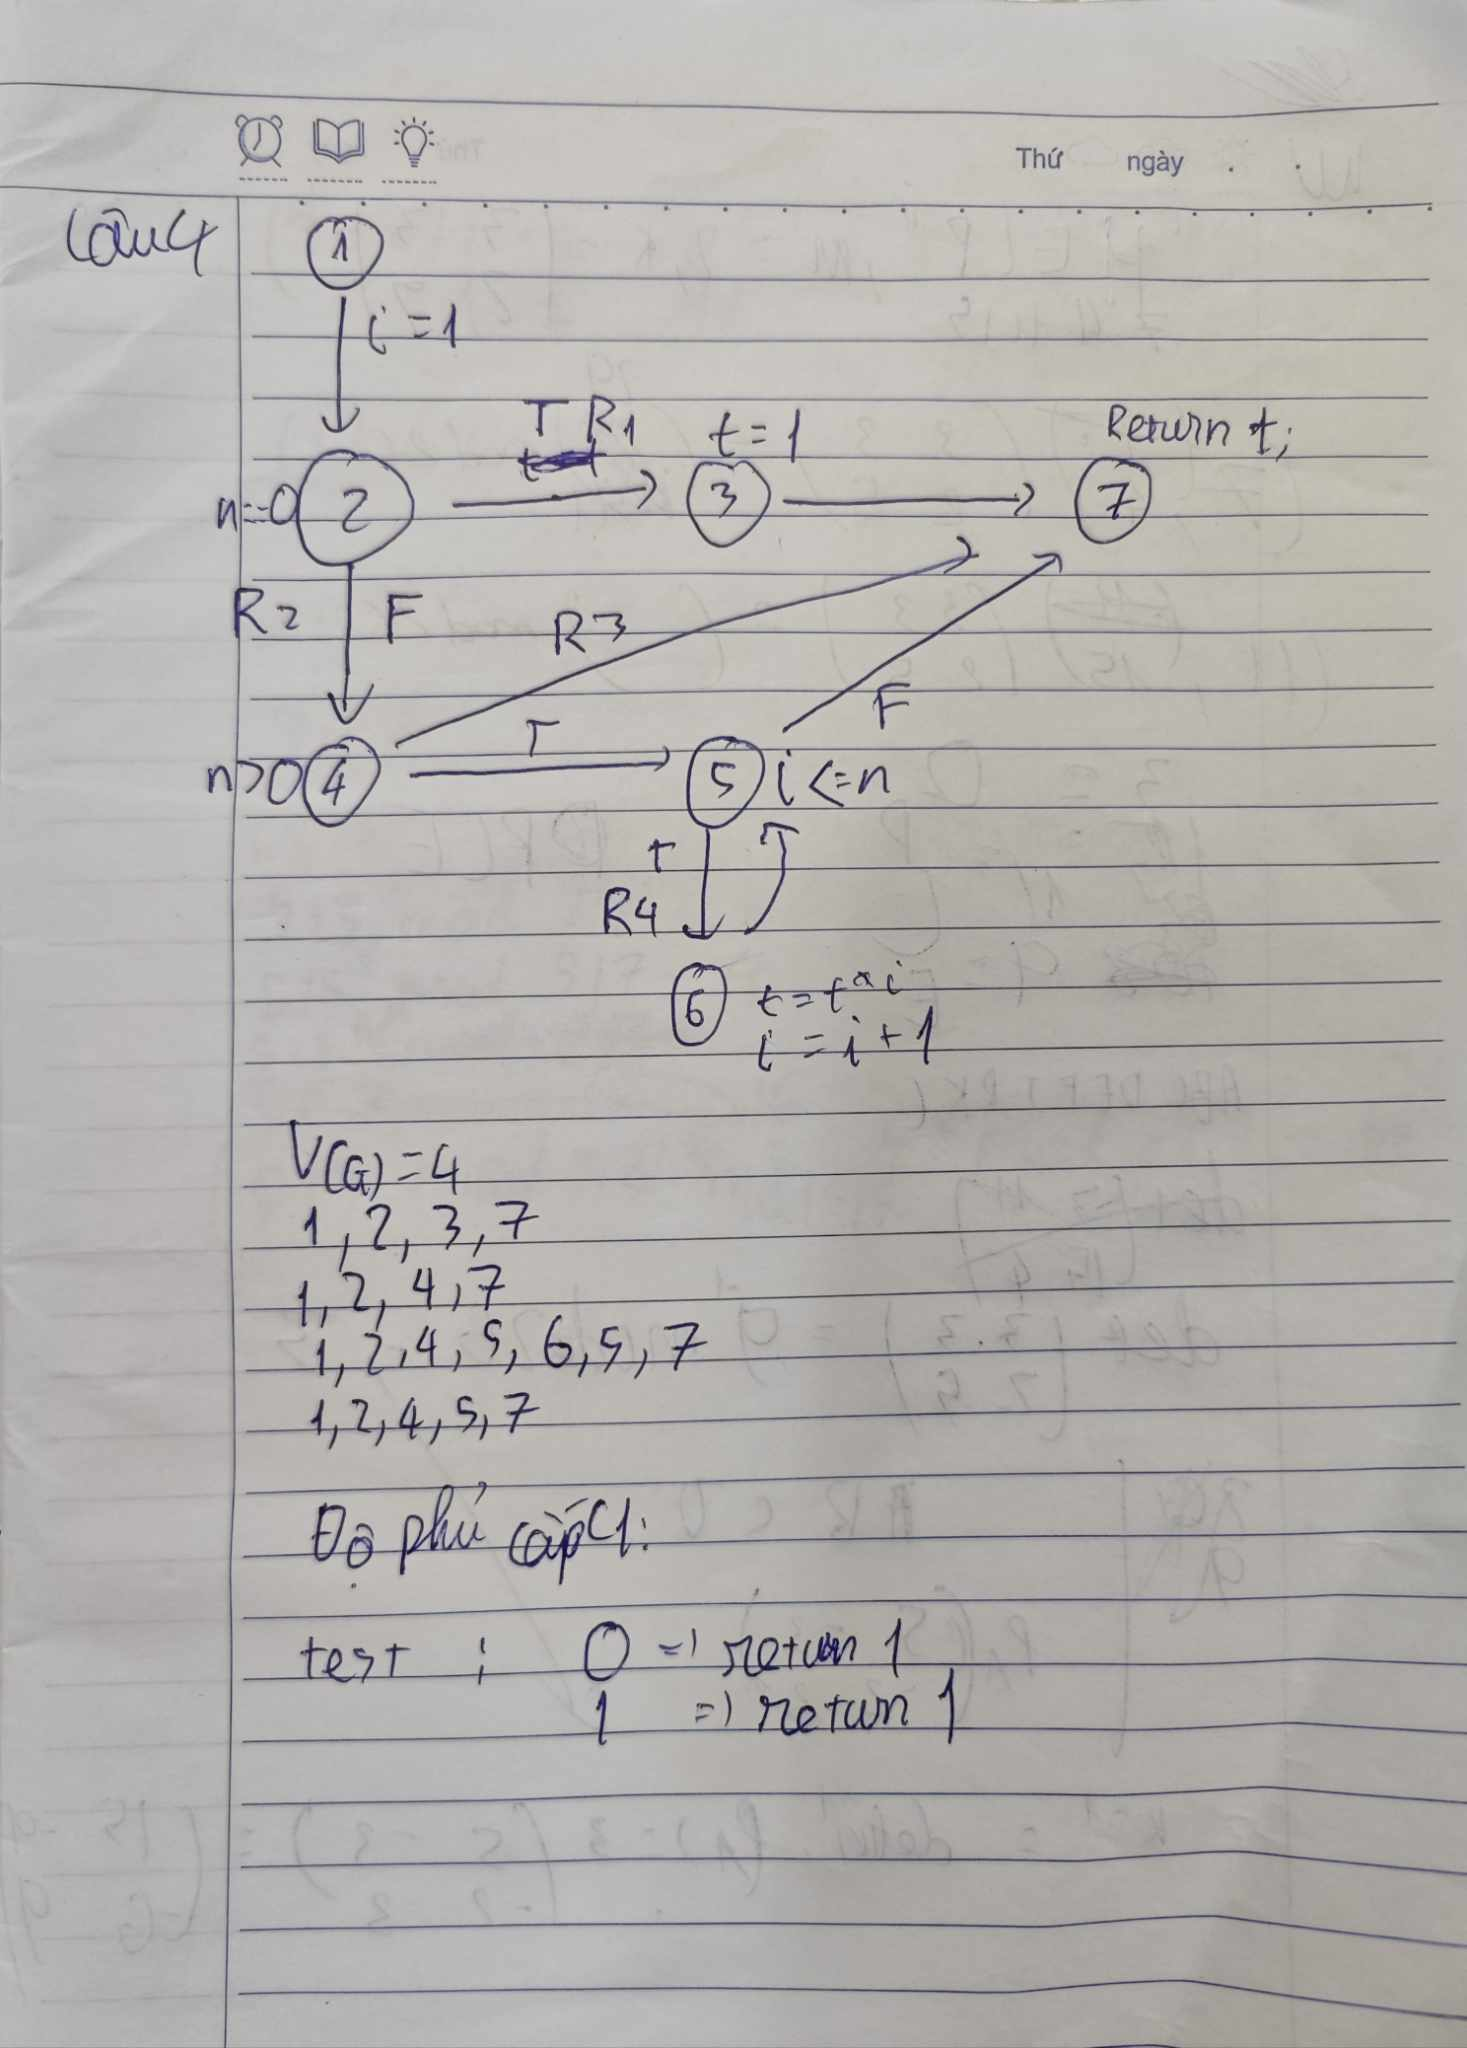 Thứ ngày . .
Câu 4
1
i = 1
T R1
t = 1
Return t;
n==0 2
3
7
R2 F
R3
F
n>0 4
T
5 i <= n
T
R4
6 t = t * i
i = i + 1
V(G) = 4
1, 2, 3, 7
1, 2, 4, 7
1, 2, 4, 5, 6, 5, 7
1, 2, 4, 5, 7
Độ phủ cấp C1:
test : 0 => return 1
1 => return 1